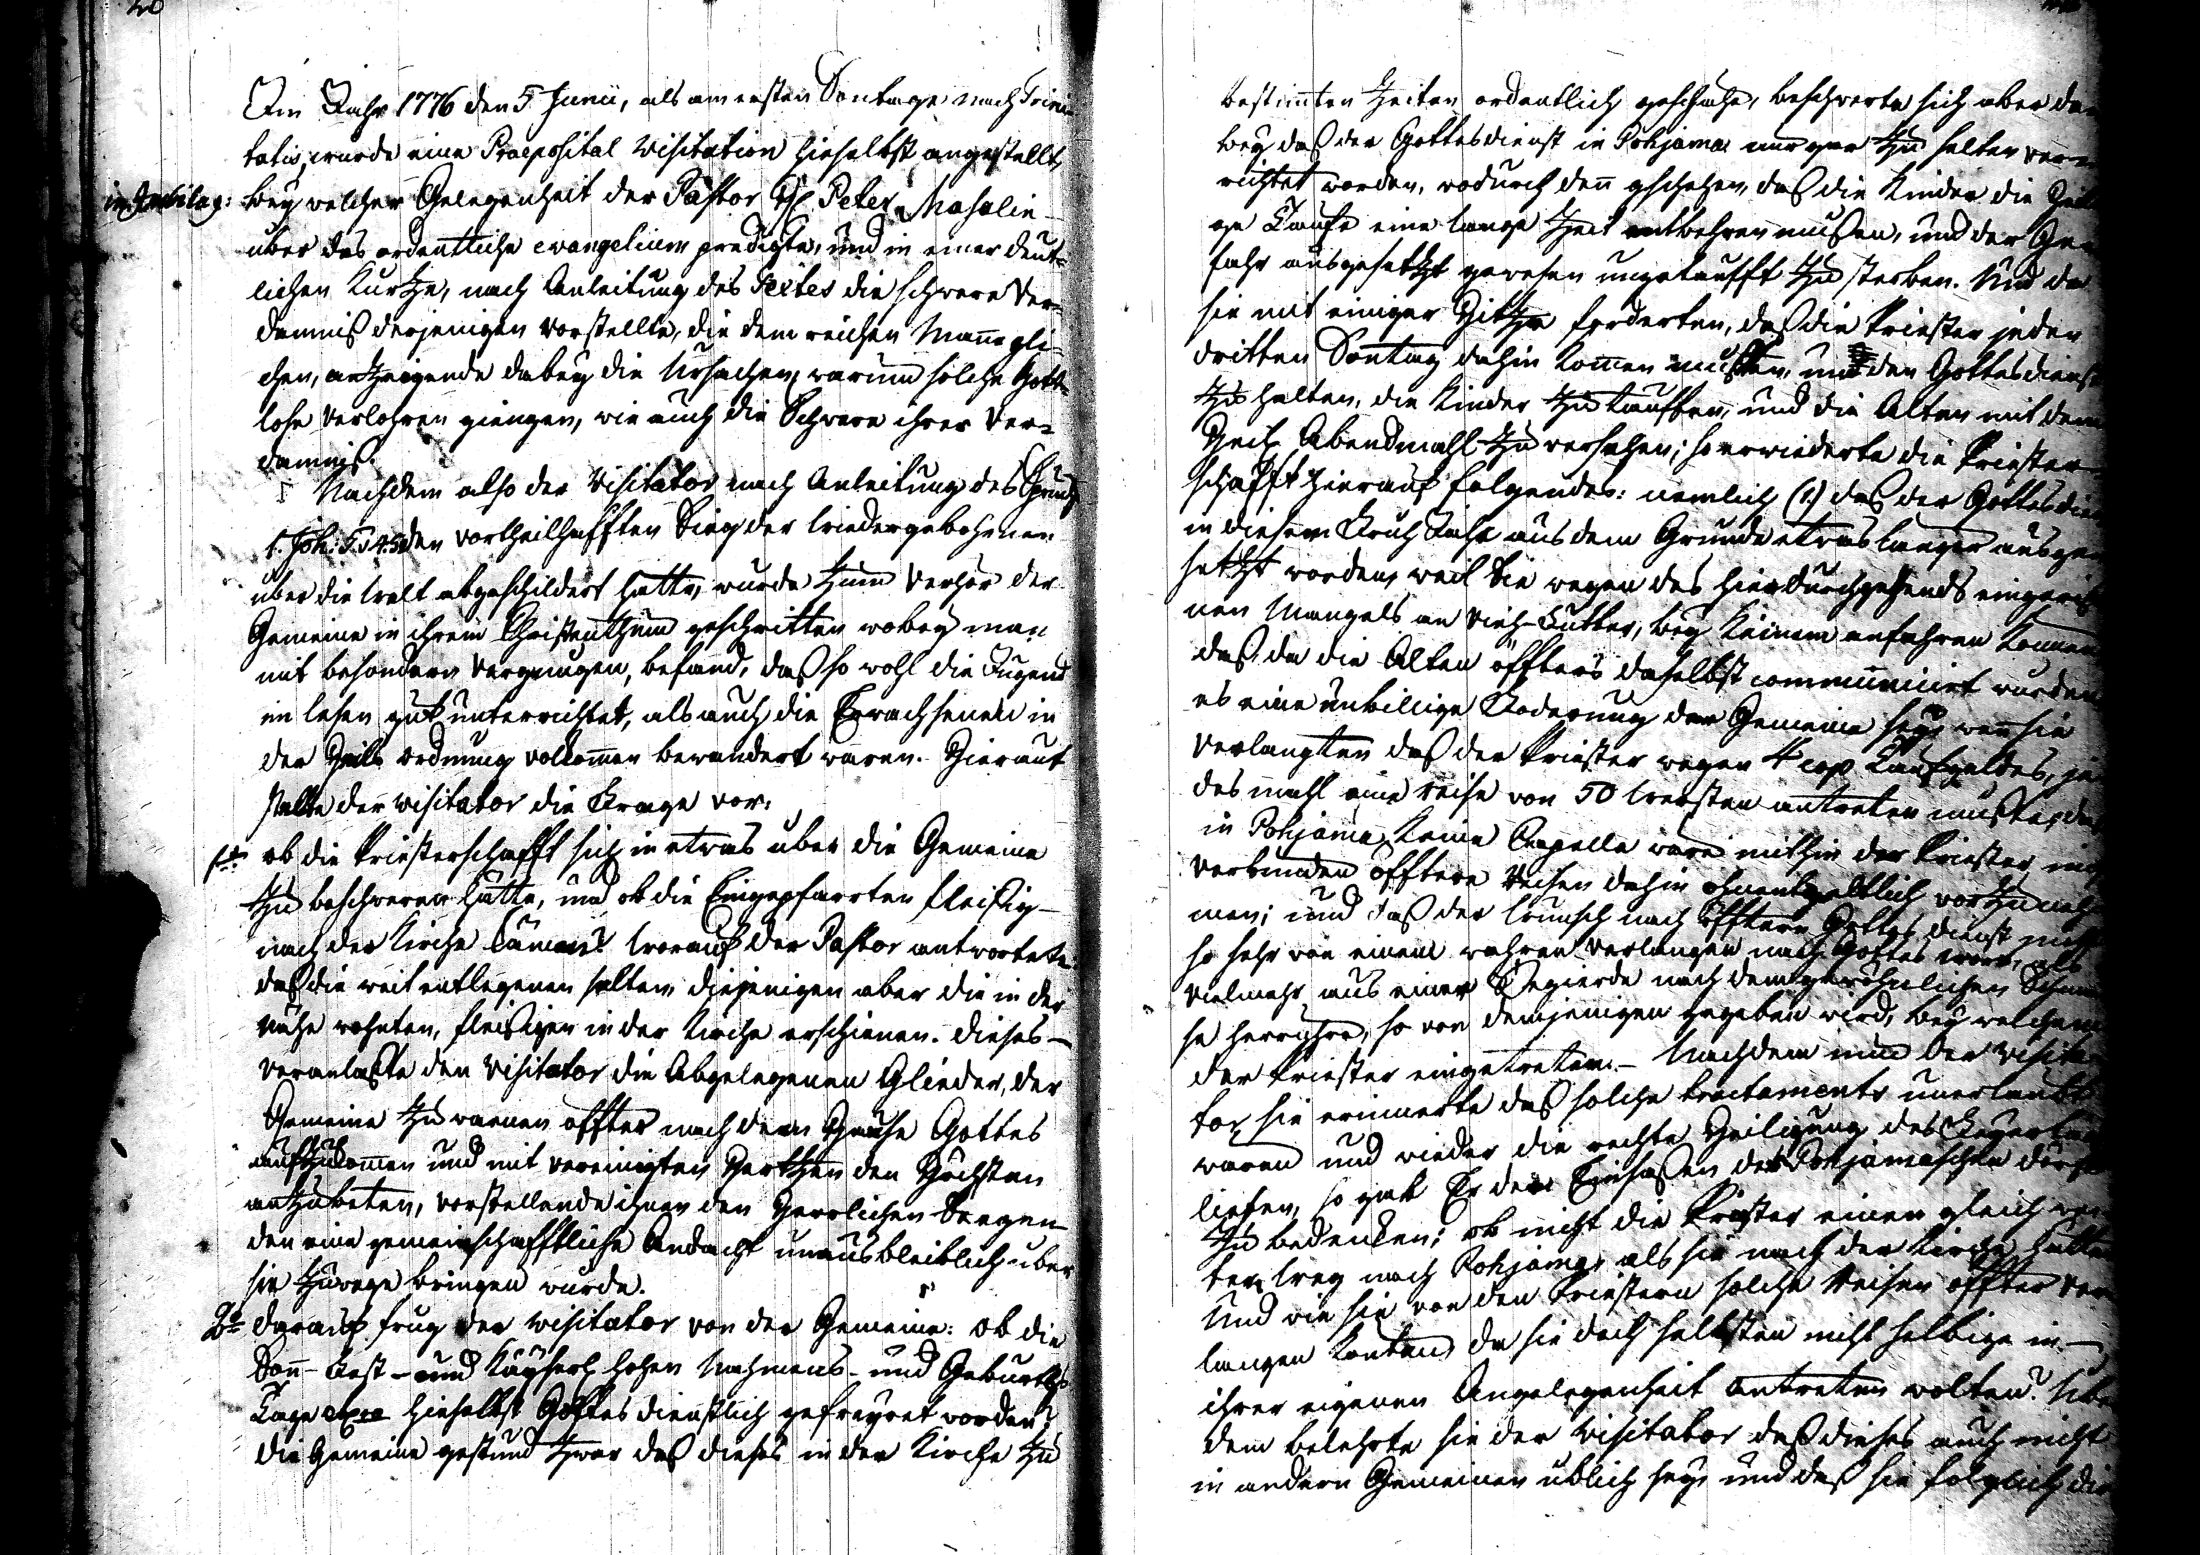 20
Im Jahr 1776 den 5 Junii, als am ersten Sontage nach Trini-
tatis, wurde eine Praeposital Visitation hieselbst angestellt,
bey welcher Gelegenheit der Pastor H. Peter Masalin
uber das ordentliche evangelium predigte, und in einer deut-
lichen Kurtze, nach Anleitung des Textes die schwere Ver-
damniß derjenigen vorstellte, die dem reichen Manne gli-
chen, antzeigende dabey die Ursachen, warum solche Gott-
lose verlohren giengen, wie auch die Schwere ihrer Ver-
damniß.
Nachdem also der Visitator nach Anleitung des Spruchs
1. Joh: 5. v 4.5. den vortheilhafften Sieg der Wiedergebohrnen
uber die Welt abgeschildert hatte, wurde zum Verhör der
Gemeine in ihrem Christenthum geschritten wobey man
mit besondern Vergnugen, befand, daß so wohl die Jugend
im lesen gut unterrichtet, als auch die Erwachsenen in
der Heils ordnung volkomen bewandert waren. Hierauf
stellte der Visitator die Frage vor:
1mo ob die Priesterschafft sich in etwas uber die Gemeine
zu beschweren hätte, und ob die Eingepfarrten fleißig
nach der Kirche kämen? Worauf der Pastor antwortete
daß die weit entlegenen selten, diejenigen aber die in der
Nähe wohnten, fleißiger in der Kirche erschienen. dieses
veranlaßte den Visitator die Abgelegenen Glieder, der
Gemeine zu warnen öffter nach dem Hause Gottes
zukommen und mit vereinigten Hertzen den Höchsten
antzubeten, vorstellende ihnen den Herrlichen Seegen
den eine gemeinschafftliche Andacht unausbleiblich uber
sie zuwege bringen wurde.
2do darauf frug der Visitator von der Gemeine: ob die
Sonn- Fest- und Kayserl hohen Nahmens- und Geburths
Tage hieselbst Gottesdienstlich gefeyret worden?
die Gemeine gestund zwar daß dieses in der Kirche zu
bestimten Zeiten ordentlich geschähe, beschwerte sich aber da
bey daß der Gottesdienst in Pohjama nur gar zu selten ver-
richtet worden, wodurch denn gschehen, daß die Kinder die Heili
ge Taufe eine lange Zeit entbehren mußen, und der Ge
fahr ausgesetzt gewesen ungetaufft zu sterben. Und da
sie mit einiger Hitze forderten, daß die Priester jeden
dritten Sontag dahin komen müßten, um den Gottesdienst
zu halten, die Kinder zu tauffen, und die Alten mit dem
Heil. Abendmahl zu versehen; so erwiederte die Priester-
schafft hierauf folgendes: nemlich (1) daß der Gottesdien
in diesem Fruh Jahr aus dem Grunde etwas langer ausge
setzt worden, weil Sie wegen des hier durchgehends eingeriß
nen Mangels an Vieh-Futter, bey keinem anfahren konnen
daß, da die Alten öffters daselbst communicirt wurden
es eine unbillige Foderung der Gemeine sey, wen sie
verlangten daß der Priester wegen 4 cop Taufgeldes, je
des mahl eine reise von 50 Wersten antreten mußte, da
in Pohjama keine Capelle wäre mithin der Priester
verbunden öfftere Reisen dahin ohnentgeltlich vorzuneh
men; und daß der Wunsch nach öfftern Gottesdienst nicht
so sehr von einem wahren Verlangen nach Gottes wort, als
vielmehr aus einer Begierde nach dem gewöhnlichen Schmau
se herruhre, so von demjenigen gegeben wird, bey welchem
der Priester eingetreten. Nachdem nun der Visita
tor sie erinnerte daß solche tractamente unerlaubt
waren und wieder die rechte Heiligung des Feyertag
liefen, so gab Er den Einsaßen des Pohjamaschen
zu bedenken; ob nicht die Priester einen gleich wei
ten Weg nach Pohjama, als sie nach der Kirche hätten
Und wie sie von den Priestern solche Reisen öffter ver
langen könten, da sie doch selbsten nicht selbige in
ihrer eigenen Angelegenheit antreten wolten? Uber
dem belehrte sie der Visitator daß dieses auch nicht
in andern Gemeinen ublich sey, und daß sie folglich die